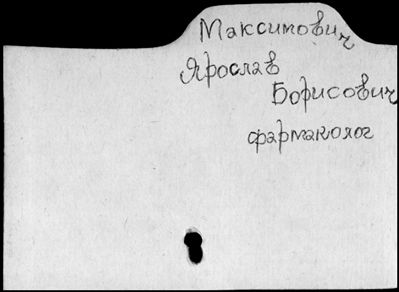 Максимович
Ярослав
Борисович
фармаколог